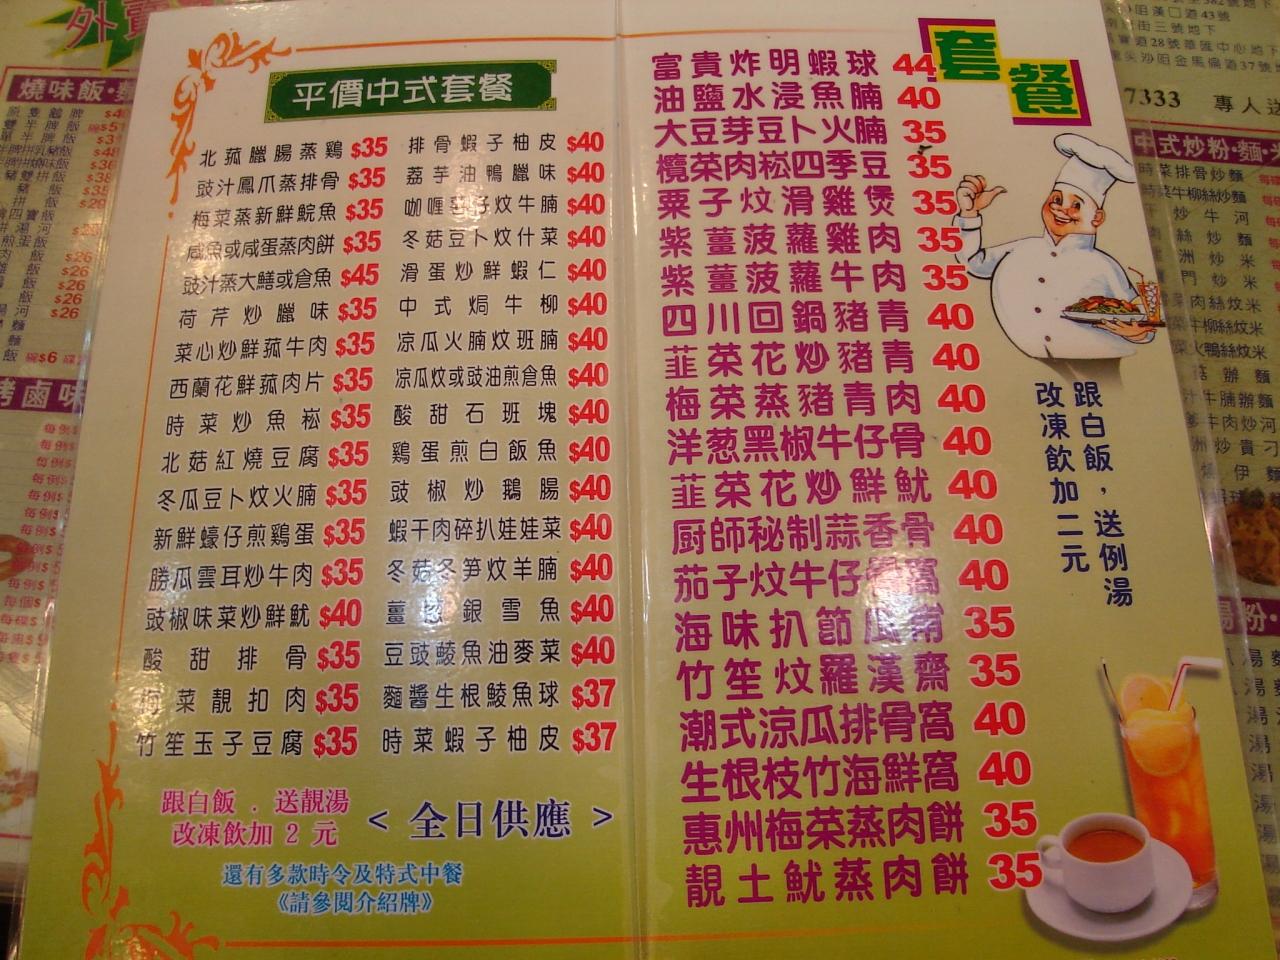 平價中式套餐
北菰臘腸蒸鷄 $35
豉汁鳳爪蒸排骨 $35
梅菜蒸新鮮鯇魚 $35
咸魚或咸蛋蒸肉餅 $35
豉汁蒸大鱔或倉魚 $45
荷芹炒臘味 $35
菜心炒鮮菰牛肉 $35
西蘭花鮮菰肉片 $35
時菜炒魚崧 $35
北菇紅燒豆腐 $35
冬瓜豆卜炆火腩 $35
新鮮蠔仔煎鷄蛋 $35
勝瓜雲耳炒牛肉 $35
豉椒味菜炒鮮魷 $40
酸甜排骨 $35
梅菜靚扣肉 $35
竹笙玉子豆腐 $35
排骨蝦子柚皮 $40
荔芋油鴨臘味 $40
咖喱薯仔炆牛腩 $40
冬菇豆卜炆什菜 $40
滑蛋炒鮮蝦仁 $40
中式焗牛柳 $40
涼瓜火腩炆班腩 $40
涼瓜炆或豉油煎倉魚 $40
酸甜石班塊 $40
鷄蛋煎白飯魚 $40
豉椒炒鵝腸 $40
蝦干肉碎扒娃娃菜 $40
冬菇冬笋炆羊腩 $40
薑葱銀雪魚 $40
豆豉鯪魚油麥菜 $40
麵醬生根鯪魚球 $37
時菜蝦子柚皮 $37
跟白飯．送靚湯
改凍飲加 2 元
< 全日供應 >
還有多款時令及特式中餐
《請參閱介紹牌》
套餐
富貴炸明蝦球 44
油鹽水浸魚腩 40
大豆芽豆卜火腩 35
欖菜肉崧四季豆 35
栗子炆滑雞煲 35
紫薑菠蘿雞肉 35
紫薑菠蘿牛肉 35
四川回鍋豬青 40
韮菜花炒豬青 40
梅菜蒸豬青肉 40
洋葱黑椒牛仔骨 40
韮菜花炒鮮魷 40
厨師秘制蒜香骨 40
茄子炆牛仔骨窩 40
海味扒節瓜甫 35
竹笙炆羅漢齋 35
潮式涼瓜排骨窩 40
生根枝竹海鮮窩 40
惠州梅菜蒸肉餅 35
靚土魷蒸肉餅 35
跟白飯，送例湯
改凍飲加二元
外賣
燒味飯
7333 專人
中式炒粉·麵·米
時菜排骨炒麵
炒牛河